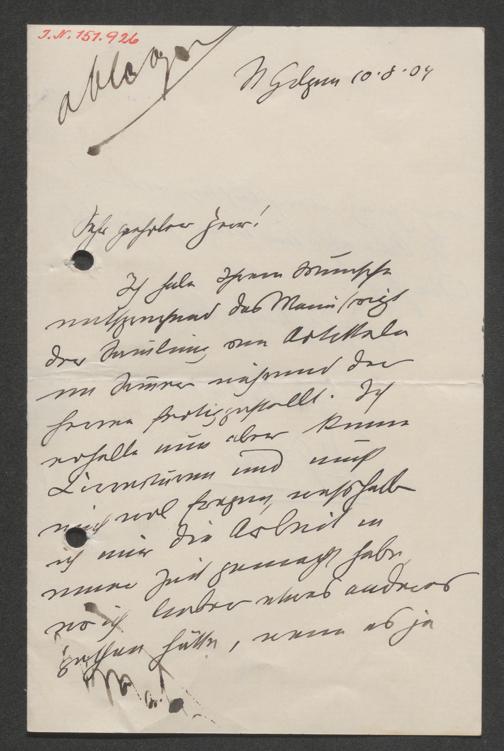 I.N. 151.926
ablegen
10.8.04
Sehr geehrter Herr!
Ich habe Ihrem Wunsche
entsprechend das Manuscript
der Sammlung von Artikeln
im Sinne während der
Ferien fertiggestellt. Ich
erhalte nun aber keine
und muß
mich wol fragen, weshalb
ich mir die Arbeit in
einer Zeit gemacht habe,
wo ich lieber etwas anderes
gethan hätte, wenn es ja